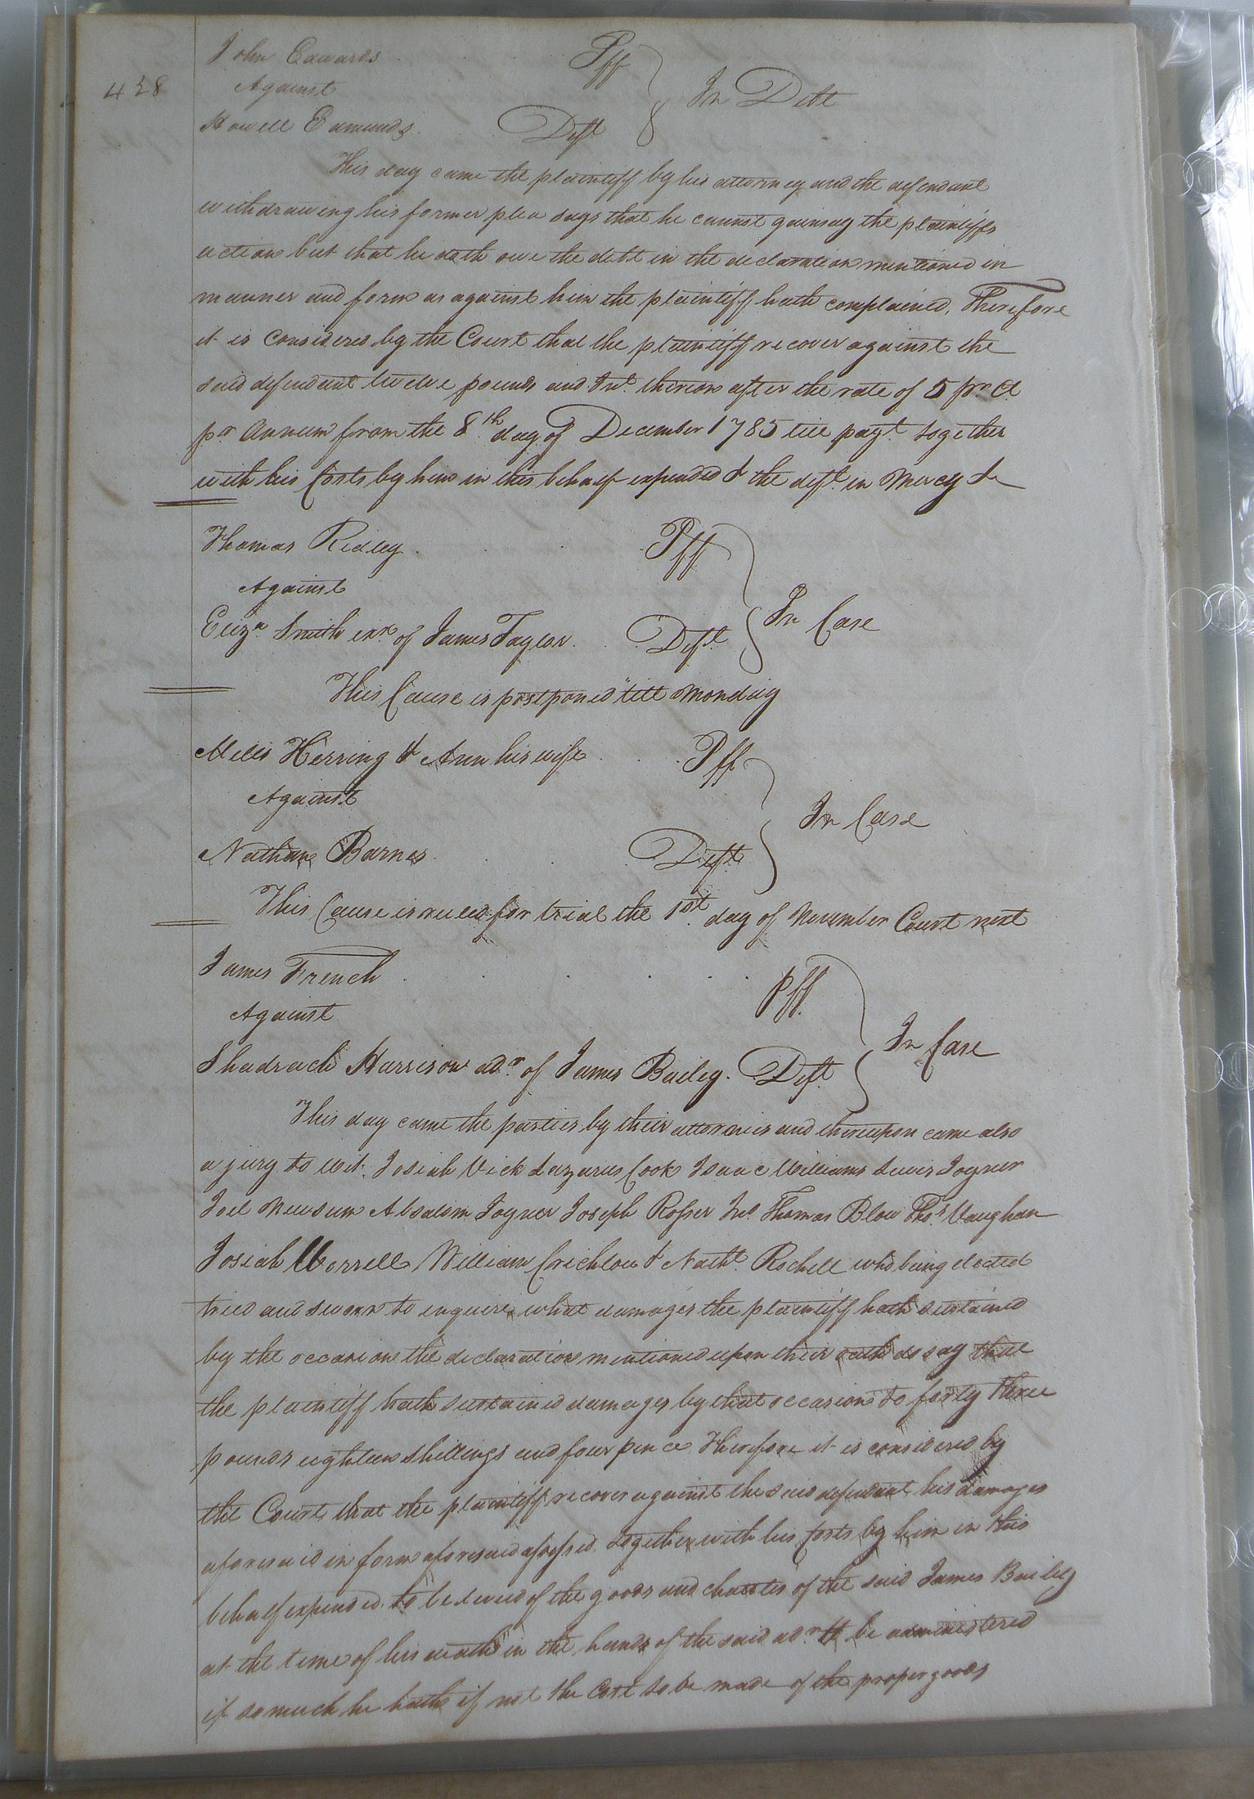 John Edwards Plf
428
Against In Debt
Howell Edmunds Deft
This day came the plaintiff by his attorney and the defendant
withdrawing his former plea says that he cannot gainsay the plaintiffs
action but that he doth owe the debt in the declaration mentioned in
manner and form as against him the plaintiff hath complained. Therefore
it is considered by the Court that the plaintiff recover against the
said defendant twelve pounds and Int. thereon after the rate of 5 pr. Ct
pr Annum from the 8th day of December 1785 till payt. together
with his Costs by him in this behalf expended & the deft. in Mercy &c
Thomas Ridley Plf
Against In Case
Eliza. Smith exx. of James Taylor Deft
This Cause is postponed till Monday
Mills Herring & Ann his wife Plf
Against In Case
Nathan Barnes Deft
This Cause is ruled for trial the 1st day of November Court next
James French Plf
Against In Case
Shadrach Harrison adr. of James Bailey. Deft
This day came the parties by their attornies and thereupon came also
a jury to wit. Josiah Vick Lazarus Cook Isaac Williams Lewis Joyner
Joel Newsum Absalom Joyner Joseph Rosser Jnr. Thomas Blow Thos. Vaughan
Josiah Worrell William Crichlow & Nathl. Rochell who being elected
tried and sworn to enquire what damages the plaintiff hath sustained
by the occasion the declaration mentioned upon their oath do say that
the plaintiff hath sustained damages by that occasion to forty three
pounds eighteen shillings and four pence Therefore it is considered by
the Court that the plaintiff recover against the said defendant his damages
aforesaid in form aforesaid assessed together with his Costs by him in this
behalf expended to be levied of the goods and chattles of the said James Bailey
at the time of his death in the hands of the said adr. to be administered
if so much he hath if not the Cost to be made of the proper goods